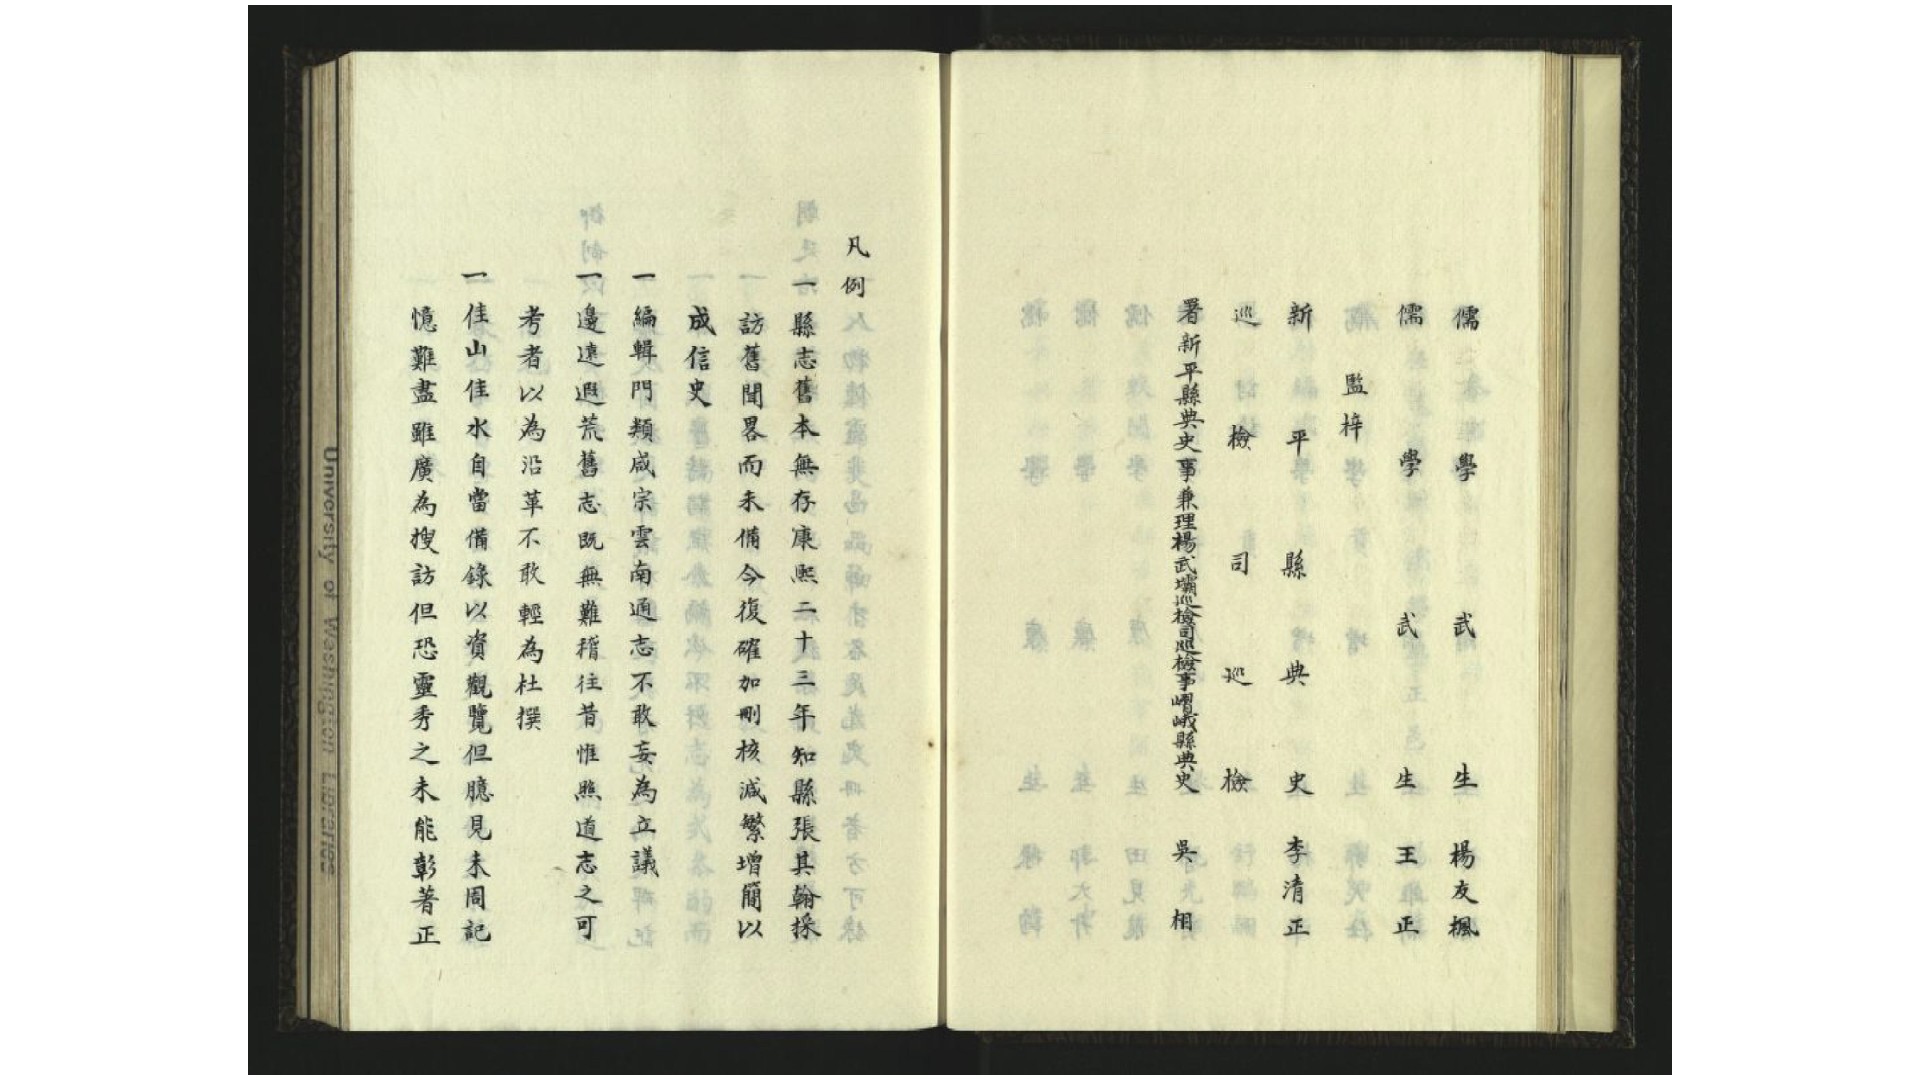 儒學武生楊友楓
儒學武生王正
監梓
新平縣典史李清正
巡檢司巡檢
署新平縣典史事兼理楊武壩巡檢司巡檢事嶍峨縣典史吳相
凡例
一縣志舊本無存康熙二十三年知縣張其翰採
訪舊聞畧而未備今復確加刪核減繁增簡以
成信史
一編輯門類咸宗雲南通志不敢妄為立議
一邊遠遐荒舊志既無難稽往昔惟照道志之可
考者以為沿革不敢輕為杜撰
一佳山佳水自當備錄以資觀覽但臆見未周記
憶難盡雖廣為搜訪但恐靈秀之未能彰著正
University of Washington Libraries